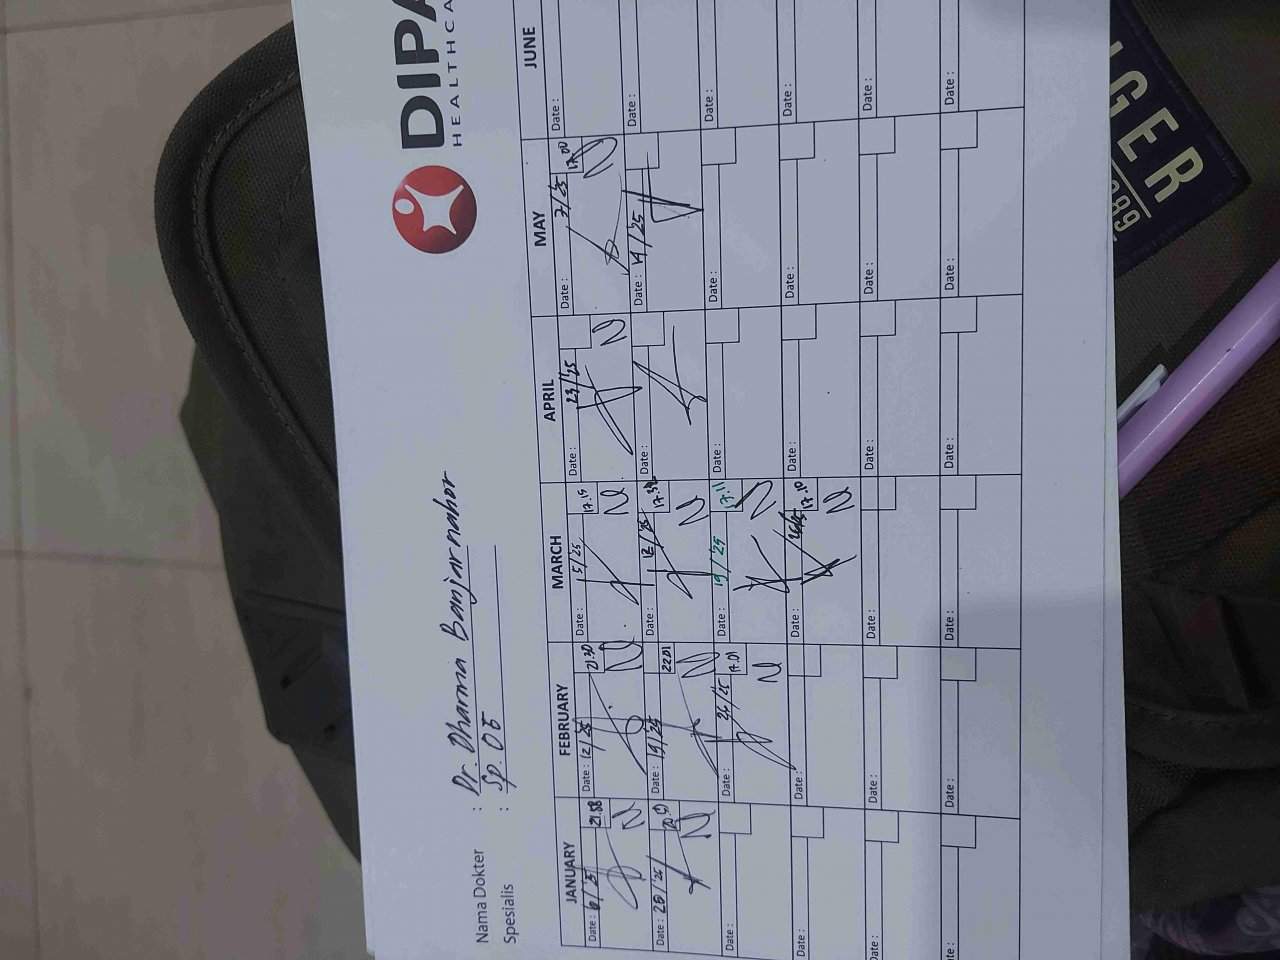 DIPA
HEALTHCA
Nama Dokter : Dr. Dharma Banjarnahor
Spesialis : Sp. OT
JANUARY FEBRUARY MARCH APRIL MAY JUNE
Date : 6/25 21.58 Date : 12/25 21.30 Date : 5/25 17.15 Date : 23/25 Date : 7/25 17.00 Date :
N N N N N
Date : 20/25 Date : 19/25 22.01 Date : 12/25 Date : Date : 14/25 Date :
N N N
Date : Date : 26/25 17.01 Date : 19/25 17.11 Date : Date : Date :
N N
Date : Date : Date : 17.10 Date : Date : Date :
N
Date : Date : Date : Date : Date : Date :
Date : Date : Date : Date : Date : Date :
IGER
1989